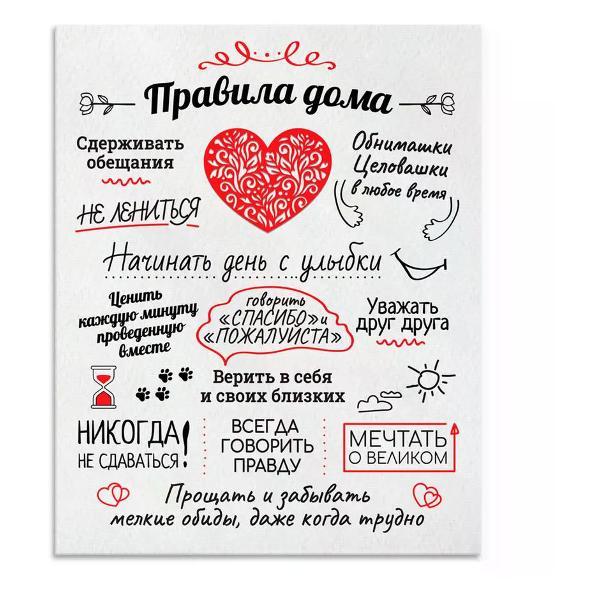 Правила дома
Сдерживать
обещания
Обнимашки
Целовашки
в любое время
НЕ ЛЕНИТЬСЯ
Начинать день с улыбки
Ценить
каждую минуту
проведенную
вместе
говорить
«СПАСИБО» и
«ПОЖАЛУЙСТА»
Уважать
друг друга
Верить в себя
и своих близких
НИКОГДА
НЕ СДАВАТЬСЯ!
ВСЕГДА
ГОВОРИТЬ
ПРАВДУ
МЕЧТАТЬ
О ВЕЛИКОМ
Прощать и забывать
мелкие обиды, даже когда трудно